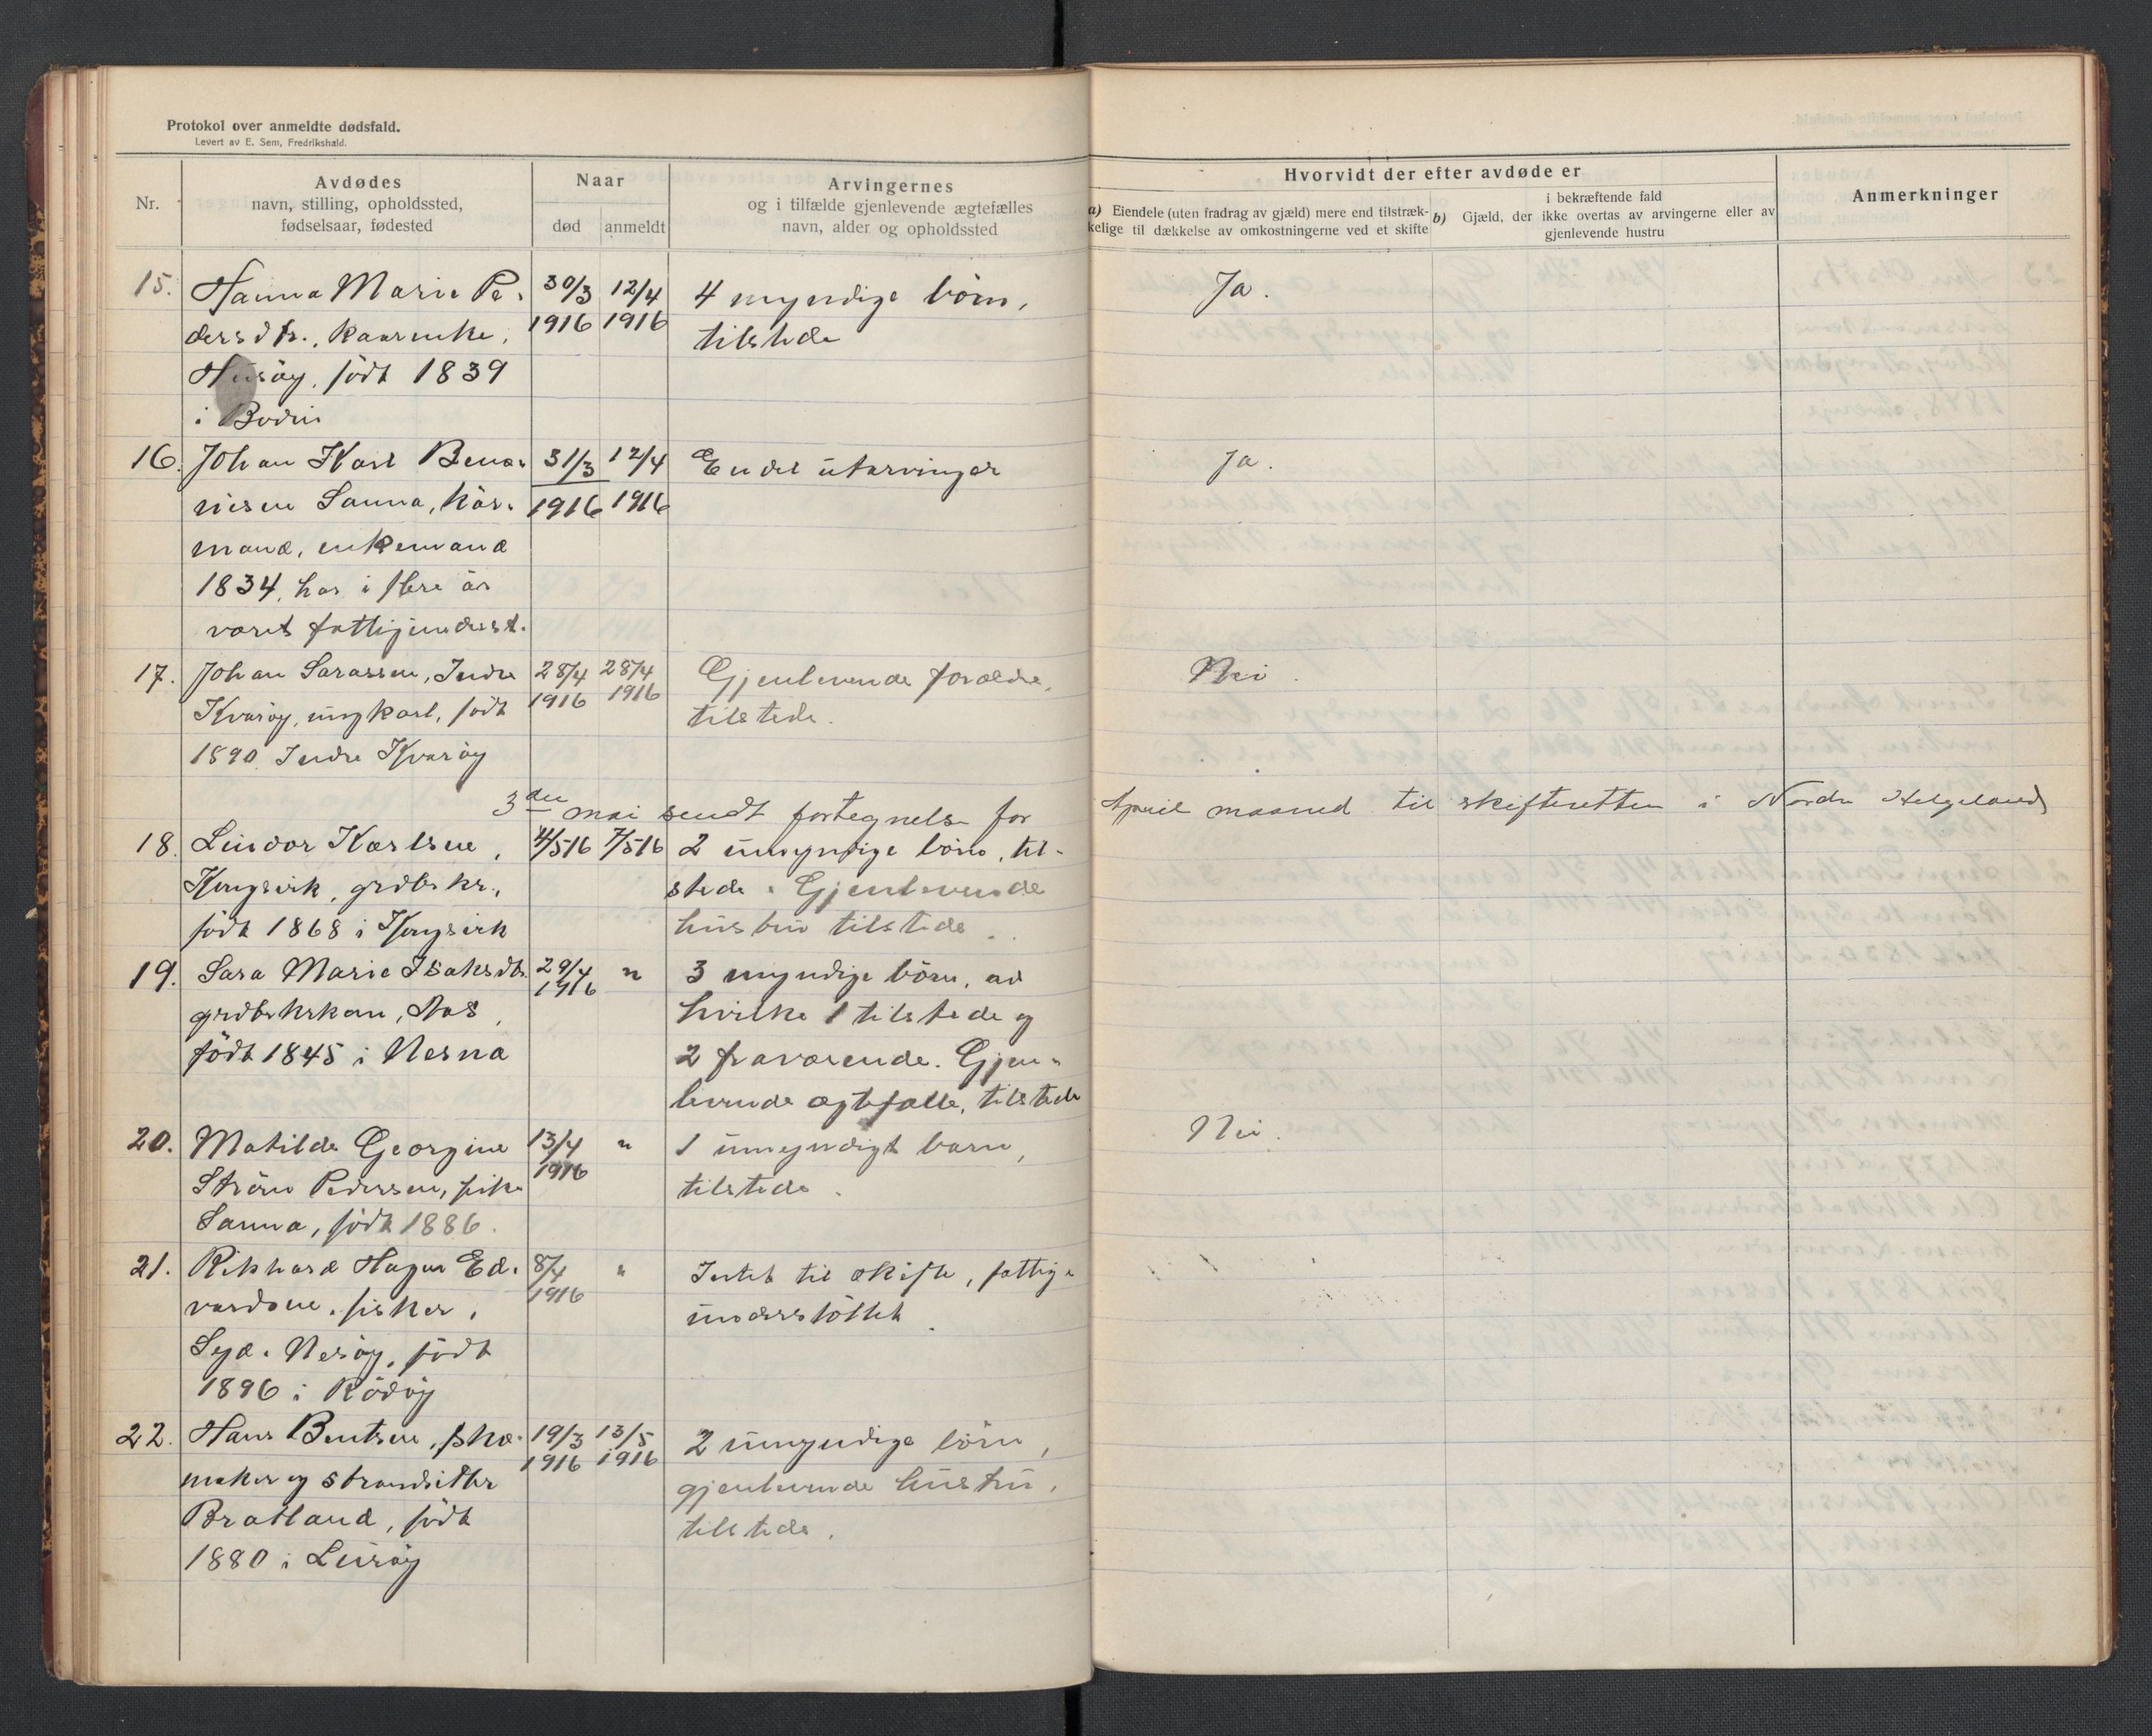 Protokol over anmeldte dødsfald.
Levert av E. Sem, Fredrikshald.
Nr.
Avdødes
navn, stilling, opholdssted,
fødselsaar, fødested
Naar
død
anmeldt
Arvingernes
og i tilfælde gjenlevende ægtefælles
navn, alder og opholdssted
Hvorvidt der efter avdøde er
a) Eiendele (uten fradrag av gjæld) mere end tilstræk-
kelige til dækkelse av omkostningerne ved et skifte
i bekræftende fald
b) Gjæld, der ikke overtas av arvingerne eller av
gjenlevende hustru
Anmerkninger
15. Hanna Marie Pe- 30/3 12/4 4 myndige börn, Ja.
dersdtr., kaarenke, 1916 1916 tilstede
Husöy, födt 1839
i Bodin
16. Johan Karl Bena- 31/3 12/4 En del utarvinger Ja.
risen Sanna, kår- 1916 1916
mand, enkemand
1834, har i flere år
varet fattigunderst.
17. Johan Larassen, Indre 28/4 28/4 Gjenlevende forældre, Nei.
Kvaröy, ungkarl, födt 1916 1916 tilstede.
1890 Indre Kvaröy
3die mai sendt fortegnelse for April maaned til skifteretten i Nordre Helgeland
18. Lindor Karlsen, 4/5 16 7/5 16 2 umyndige börn, til-
Kongsvik, grdbrkr., stede. Gjenlevende
födt 1868 i Kongsvik hustru tilstede.
19. Sara Marie Isaksdtr. 29/4 " 3 myndige börn, av
grdbrkrkone, Aas, 1916 hvilke 1 tilstede og
födt 1845 i Nesna 2 fraværende. Gjen-
levende ægtefælle, tilstede
20. Matilde Georgine 13/4 " 1 umyndigt barn, Nei.
Ström Pedersen, pike 1916 tilstede.
Sanna, födt 1886.
21. Rikhard Hagen Ed- 8/4 " Intet til skifte, fattig-
vardsen, fisker, 1916 understöttet.
Syd-Nesöy, födt
1896 i Rödöy
22. Hans Bentsen, sko- 19/3 13/5 2 umyndige börn,
maker og strandsitter 1916 1916 gjenlevende hustru,
Bratland, födt tilstede.
1880 i Luröy